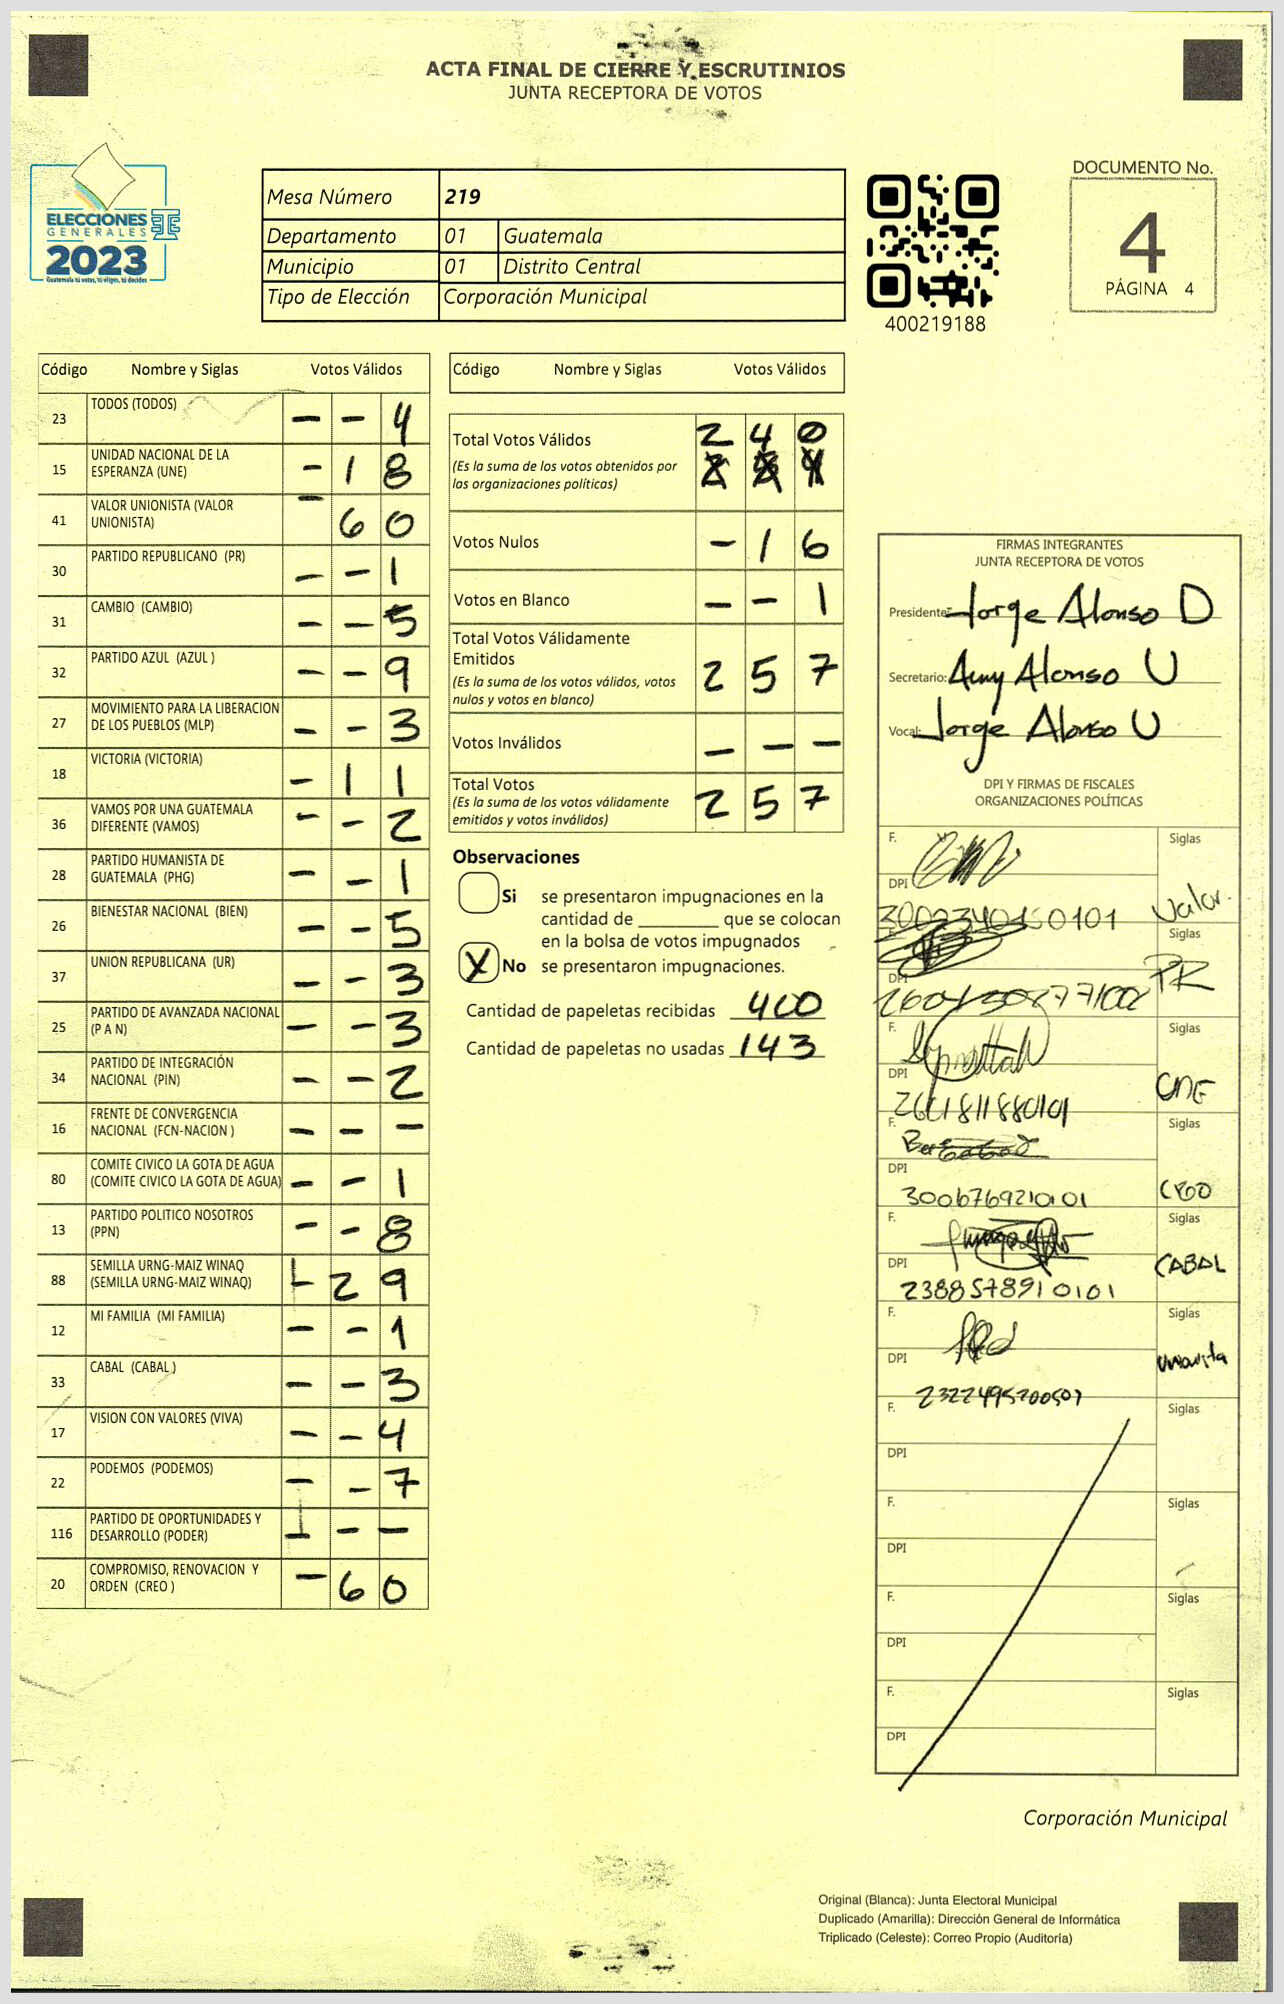 ACTA FINAL DE CIERRE Y ESCRUTINIOS
JUNTA RECEPTORA DE VOTOS
ELECCIONES
GENERALES
2023
Guatemala tú votas, tú eliges, tú decides
Mesa Número 219
Departamento 01 Guatemala
Municipio 01 Distrito Central
Tipo de Elección Corporación Municipal
400219188
DOCUMENTO No.
4
PÁGINA 4
Código Nombre y Siglas Votos Válidos
23 TODOS (TODOS) - - 4
15 UNIDAD NACIONAL DE LA ESPERANZA (UNE) - 1 8
41 VALOR UNIONISTA (VALOR UNIONISTA) - 6 0
30 PARTIDO REPUBLICANO (PR) - - 1
31 CAMBIO (CAMBIO) - - 5
32 PARTIDO AZUL (AZUL ) - - 9
27 MOVIMIENTO PARA LA LIBERACION DE LOS PUEBLOS (MLP) - - 3
18 VICTORIA (VICTORIA) - 1 1
36 VAMOS POR UNA GUATEMALA DIFERENTE (VAMOS) - - 2
28 PARTIDO HUMANISTA DE GUATEMALA (PHG) - - 1
26 BIENESTAR NACIONAL (BIEN) - - 5
37 UNION REPUBLICANA (UR) - - 3
25 PARTIDO DE AVANZADA NACIONAL (P A N) - - 3
34 PARTIDO DE INTEGRACIÓN NACIONAL (PIN) - - 2
16 FRENTE DE CONVERGENCIA NACIONAL (FCN-NACION ) - - -
80 COMITE CIVICO LA GOTA DE AGUA (COMITE CIVICO LA GOTA DE AGUA) - - 1
13 PARTIDO POLITICO NOSOTROS (PPN) - - 8
88 SEMILLA URNG-MAIZ WINAQ (SEMILLA URNG-MAIZ WINAQ) - 2 9
12 MI FAMILIA (MI FAMILIA) - - 1
33 CABAL (CABAL ) - - 3
17 VISION CON VALORES (VIVA) - - 4
22 PODEMOS (PODEMOS) - - 7
116 PARTIDO DE OPORTUNIDADES Y DESARROLLO (PODER) - - -
20 COMPROMISO, RENOVACION Y ORDEN (CREO ) - 6 0
Código Nombre y Siglas Votos Válidos
Total Votos Válidos 2 4 0
(Es la suma de los votos obtenidos por
las organizaciones políticas)
Votos Nulos - 1 6
Votos en Blanco - - 1
Total Votos Válidamente
Emitidos 2 5 7
(Es la suma de los votos válidos, votos
nulos y votos en blanco)
Votos Inválidos - - -
Total Votos 2 5 7
(Es la suma de los votos válidamente
emitidos y votos inválidos)
Observaciones
Si se presentaron impugnaciones en la
cantidad de ________ que se colocan
en la bolsa de votos impugnados
X No se presentaron impugnaciones.
Cantidad de papeletas recibidas 400
Cantidad de papeletas no usadas 143
FIRMAS INTEGRANTES
JUNTA RECEPTORA DE VOTOS
Presidente: Jorge Alonso D
Secretario: Amy Alonso U
Vocal: Jorge Alonso U
DPI Y FIRMAS DE FISCALES
ORGANIZACIONES POLÍTICAS
F. Siglas
DPI Valor.
F. Siglas
DPI PR
F. Siglas
DPI 2601811880101 UNE
F. Siglas
DPI 3006769210101 CREO
F. Siglas
DPI 2388578910101 CABAL
F. Siglas
DPI Unionista
F. Siglas
DPI
F. Siglas
DPI
F. Siglas
DPI
F. Siglas
DPI
Corporación Municipal
Original (Blanca): Junta Electoral Municipal
Duplicado (Amarilla): Dirección General de Informática
Triplicado (Celeste): Correo Propio (Auditoría)